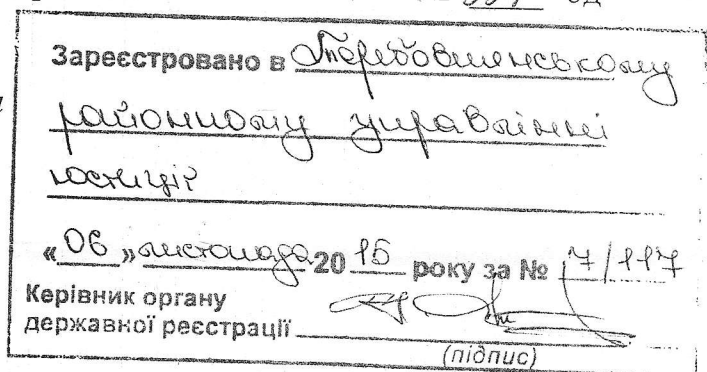 Зареєстровано в Теребовлянському
районному управлінні
юстиції
«06» листопада 2015 року за № 7/117
Керівник органу
державної реєстрації
(підпис)